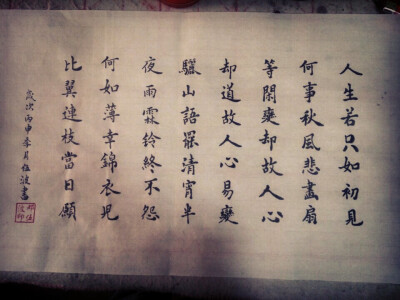 人生若只如初見
何事秋風悲畫扇
等閑變却故人心
却道故人心易變
驪山語罷清宵半
夜雨霖鈴終不怨
何如薄幸錦衣兒
比翼連枝當日願
歲次丙申季月波書